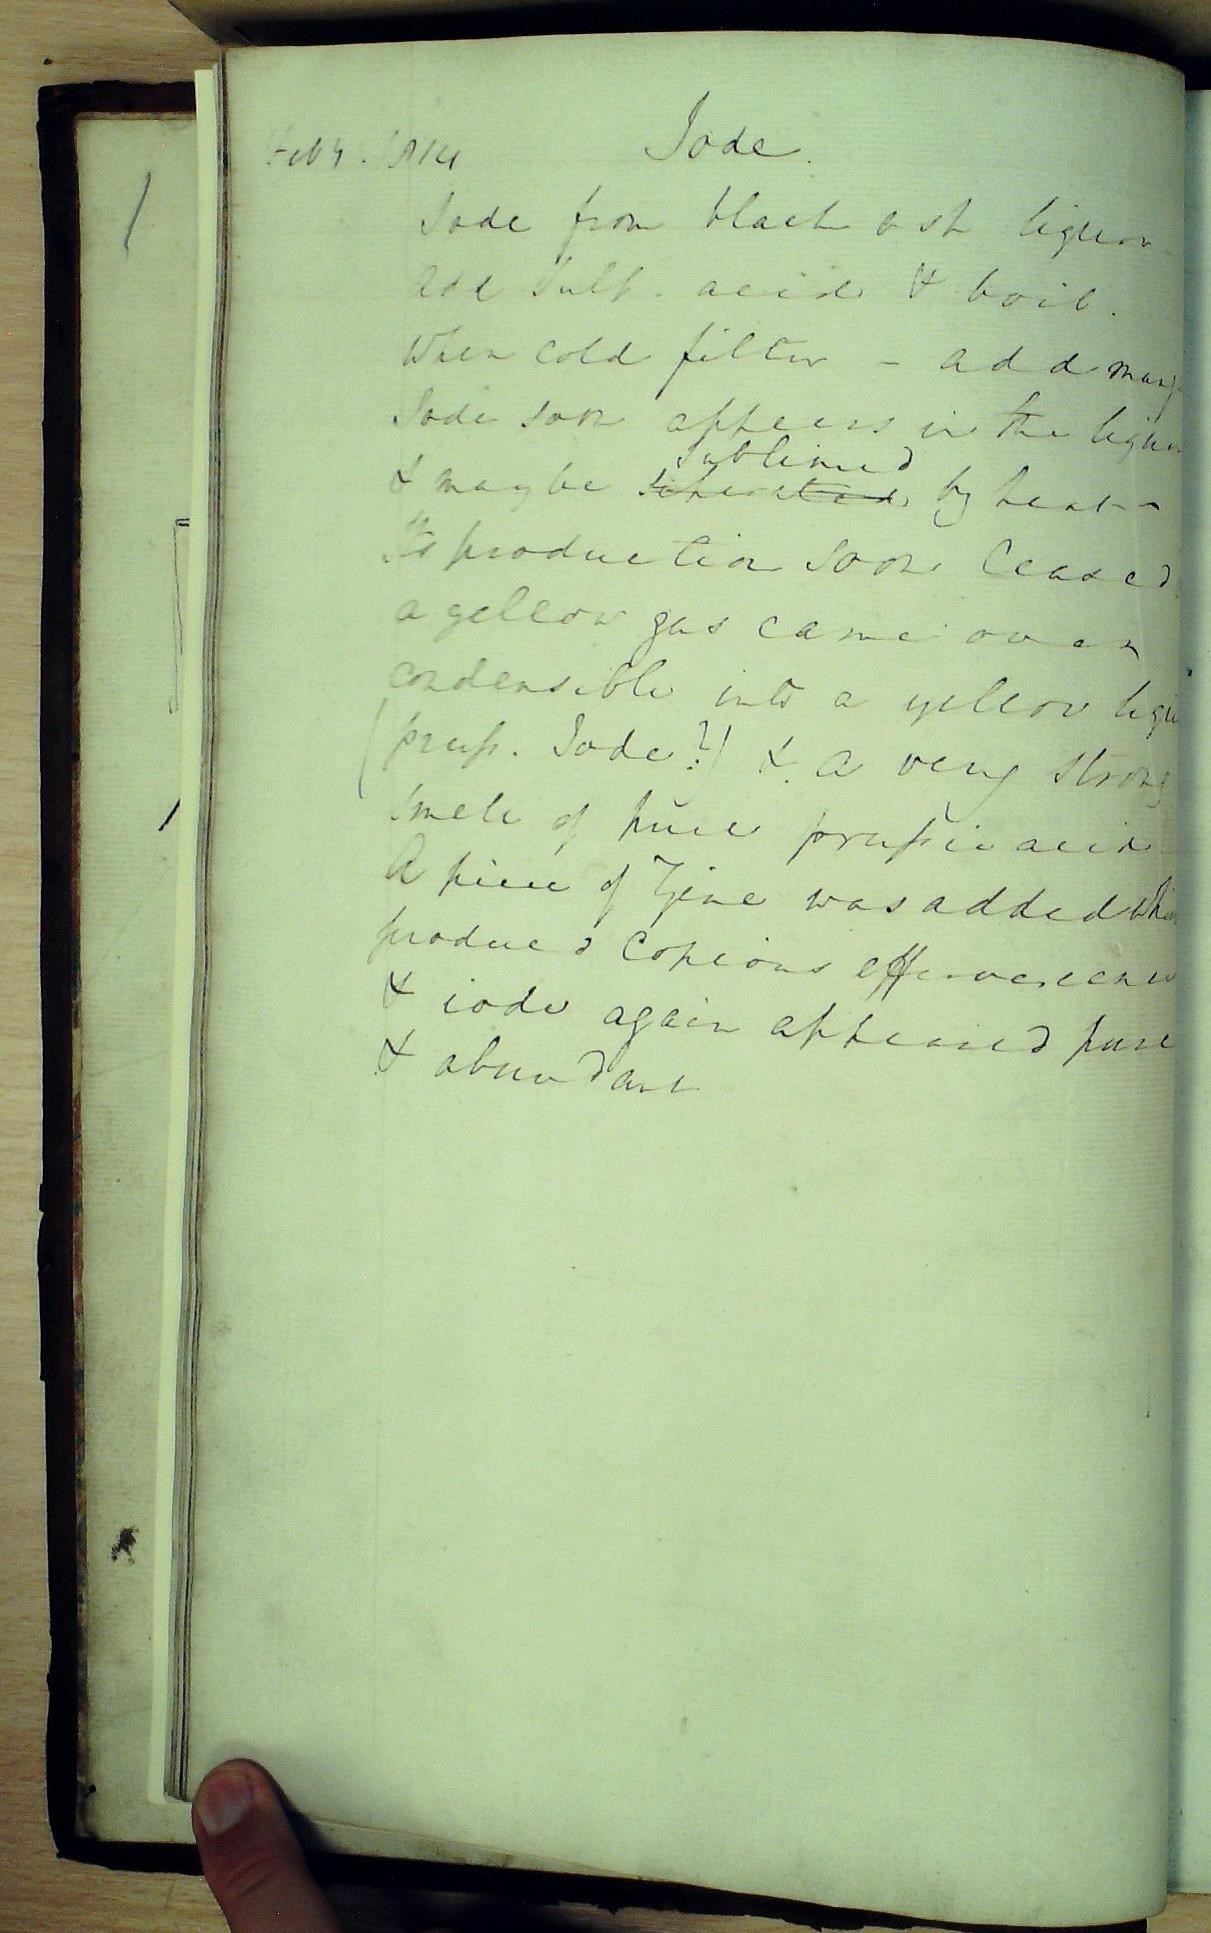 Feby. 1814
Iode.
Iode from black ash liquor
Add Sulph. acid & boil.
When cold filter - add mang
Iode soon appears in the liquor
sublimed
& may be by heat -
Its production soon ceased
a yellow gas came over
condensible into a yellow liqu
(pruss. Iode?) & a very strong
smell of pure prussic acid -
A piece of Zinc was added which
produced copious effervescence
& iode again appeared pure
& abundant